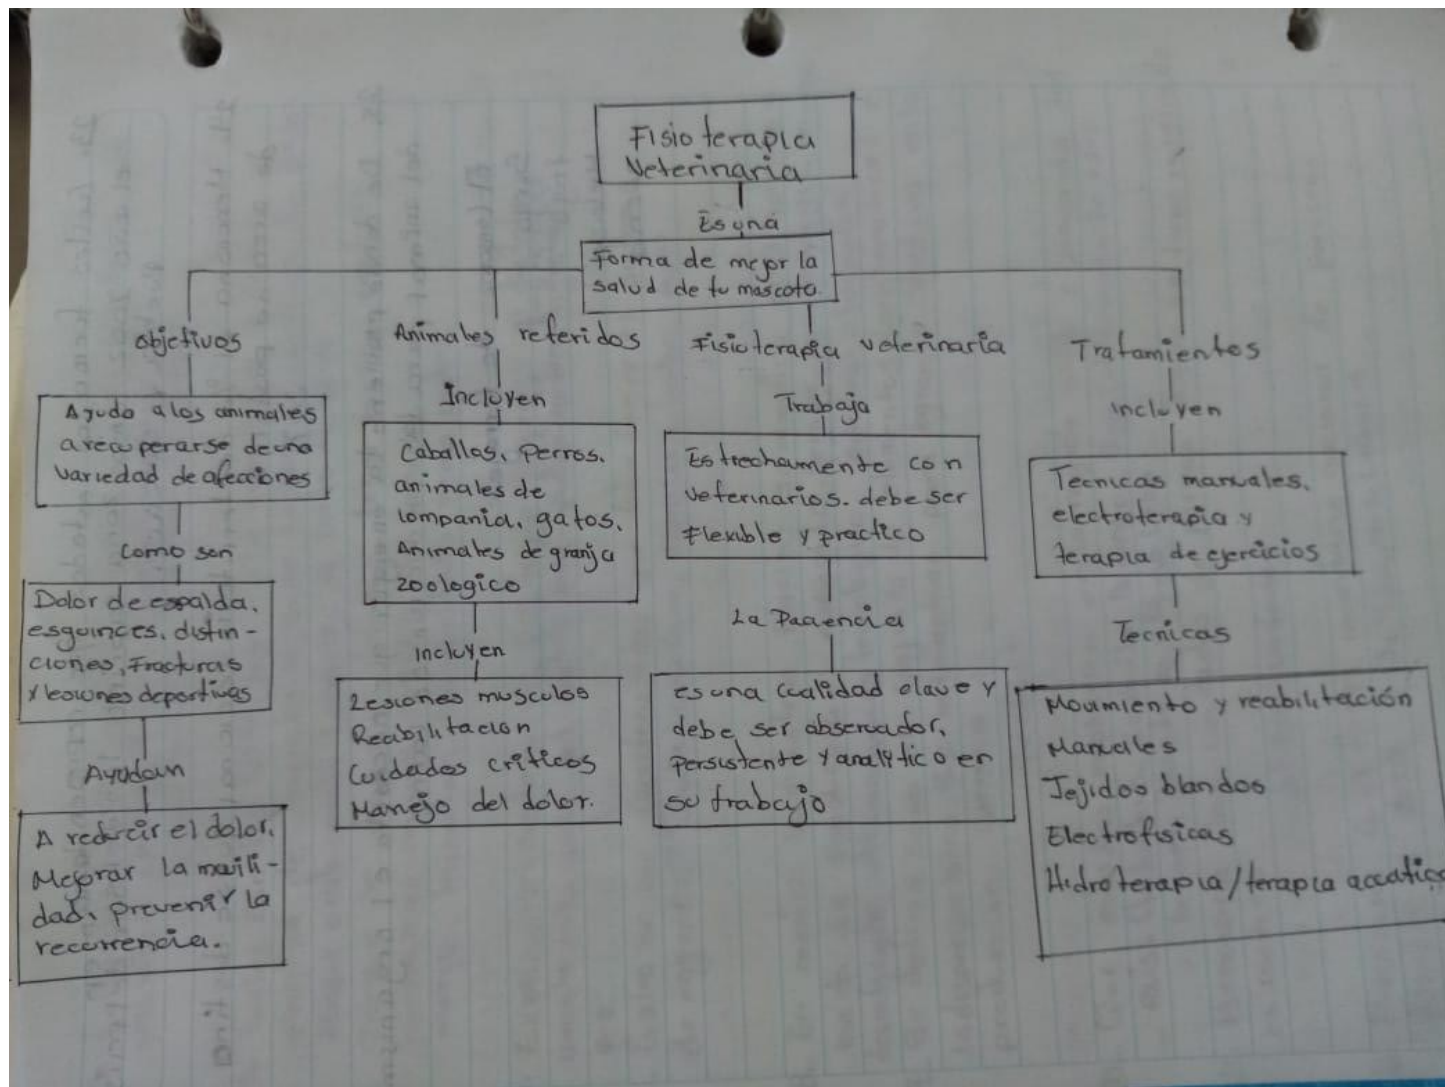 Fisioterapia
Veterinaria
Es una
Forma de mejor la
salud de tu mascota.
Objetivos
Ayuda a los animales
a recuperarse de una
variedad de afecciones
Como son
Dolor de espalda,
esguinces, distin-
ciones, Fracturas
y lesiones deportivas
Ayudan
A reducir el dolor,
Mejorar la
dad, prevenir la
recurrencia.
Animales referidos
Incluyen
Caballos, perros,
animales de
compania, gatos,
Animales de granja
zoologico
incluyen
Lesiones musculos
Reabilitacion
Cuidados criticos
Manejo del dolor.
Fisioterapia veterinaria
Trabaja
Estrechamente con
veterinarios. debe ser
Flexible y practico
La Paciencia
es una cualidad clave y
debe ser observador,
persistente y analytico en
su trabajo
Tratamientos
incluyen
Tecnicas manuales,
electroterapia y
terapia de ejercicios
Tecnicas
Movimiento y reabilitación
Manuales
Tejidos blandos
Electrofisicas
Hidroterapia/terapia